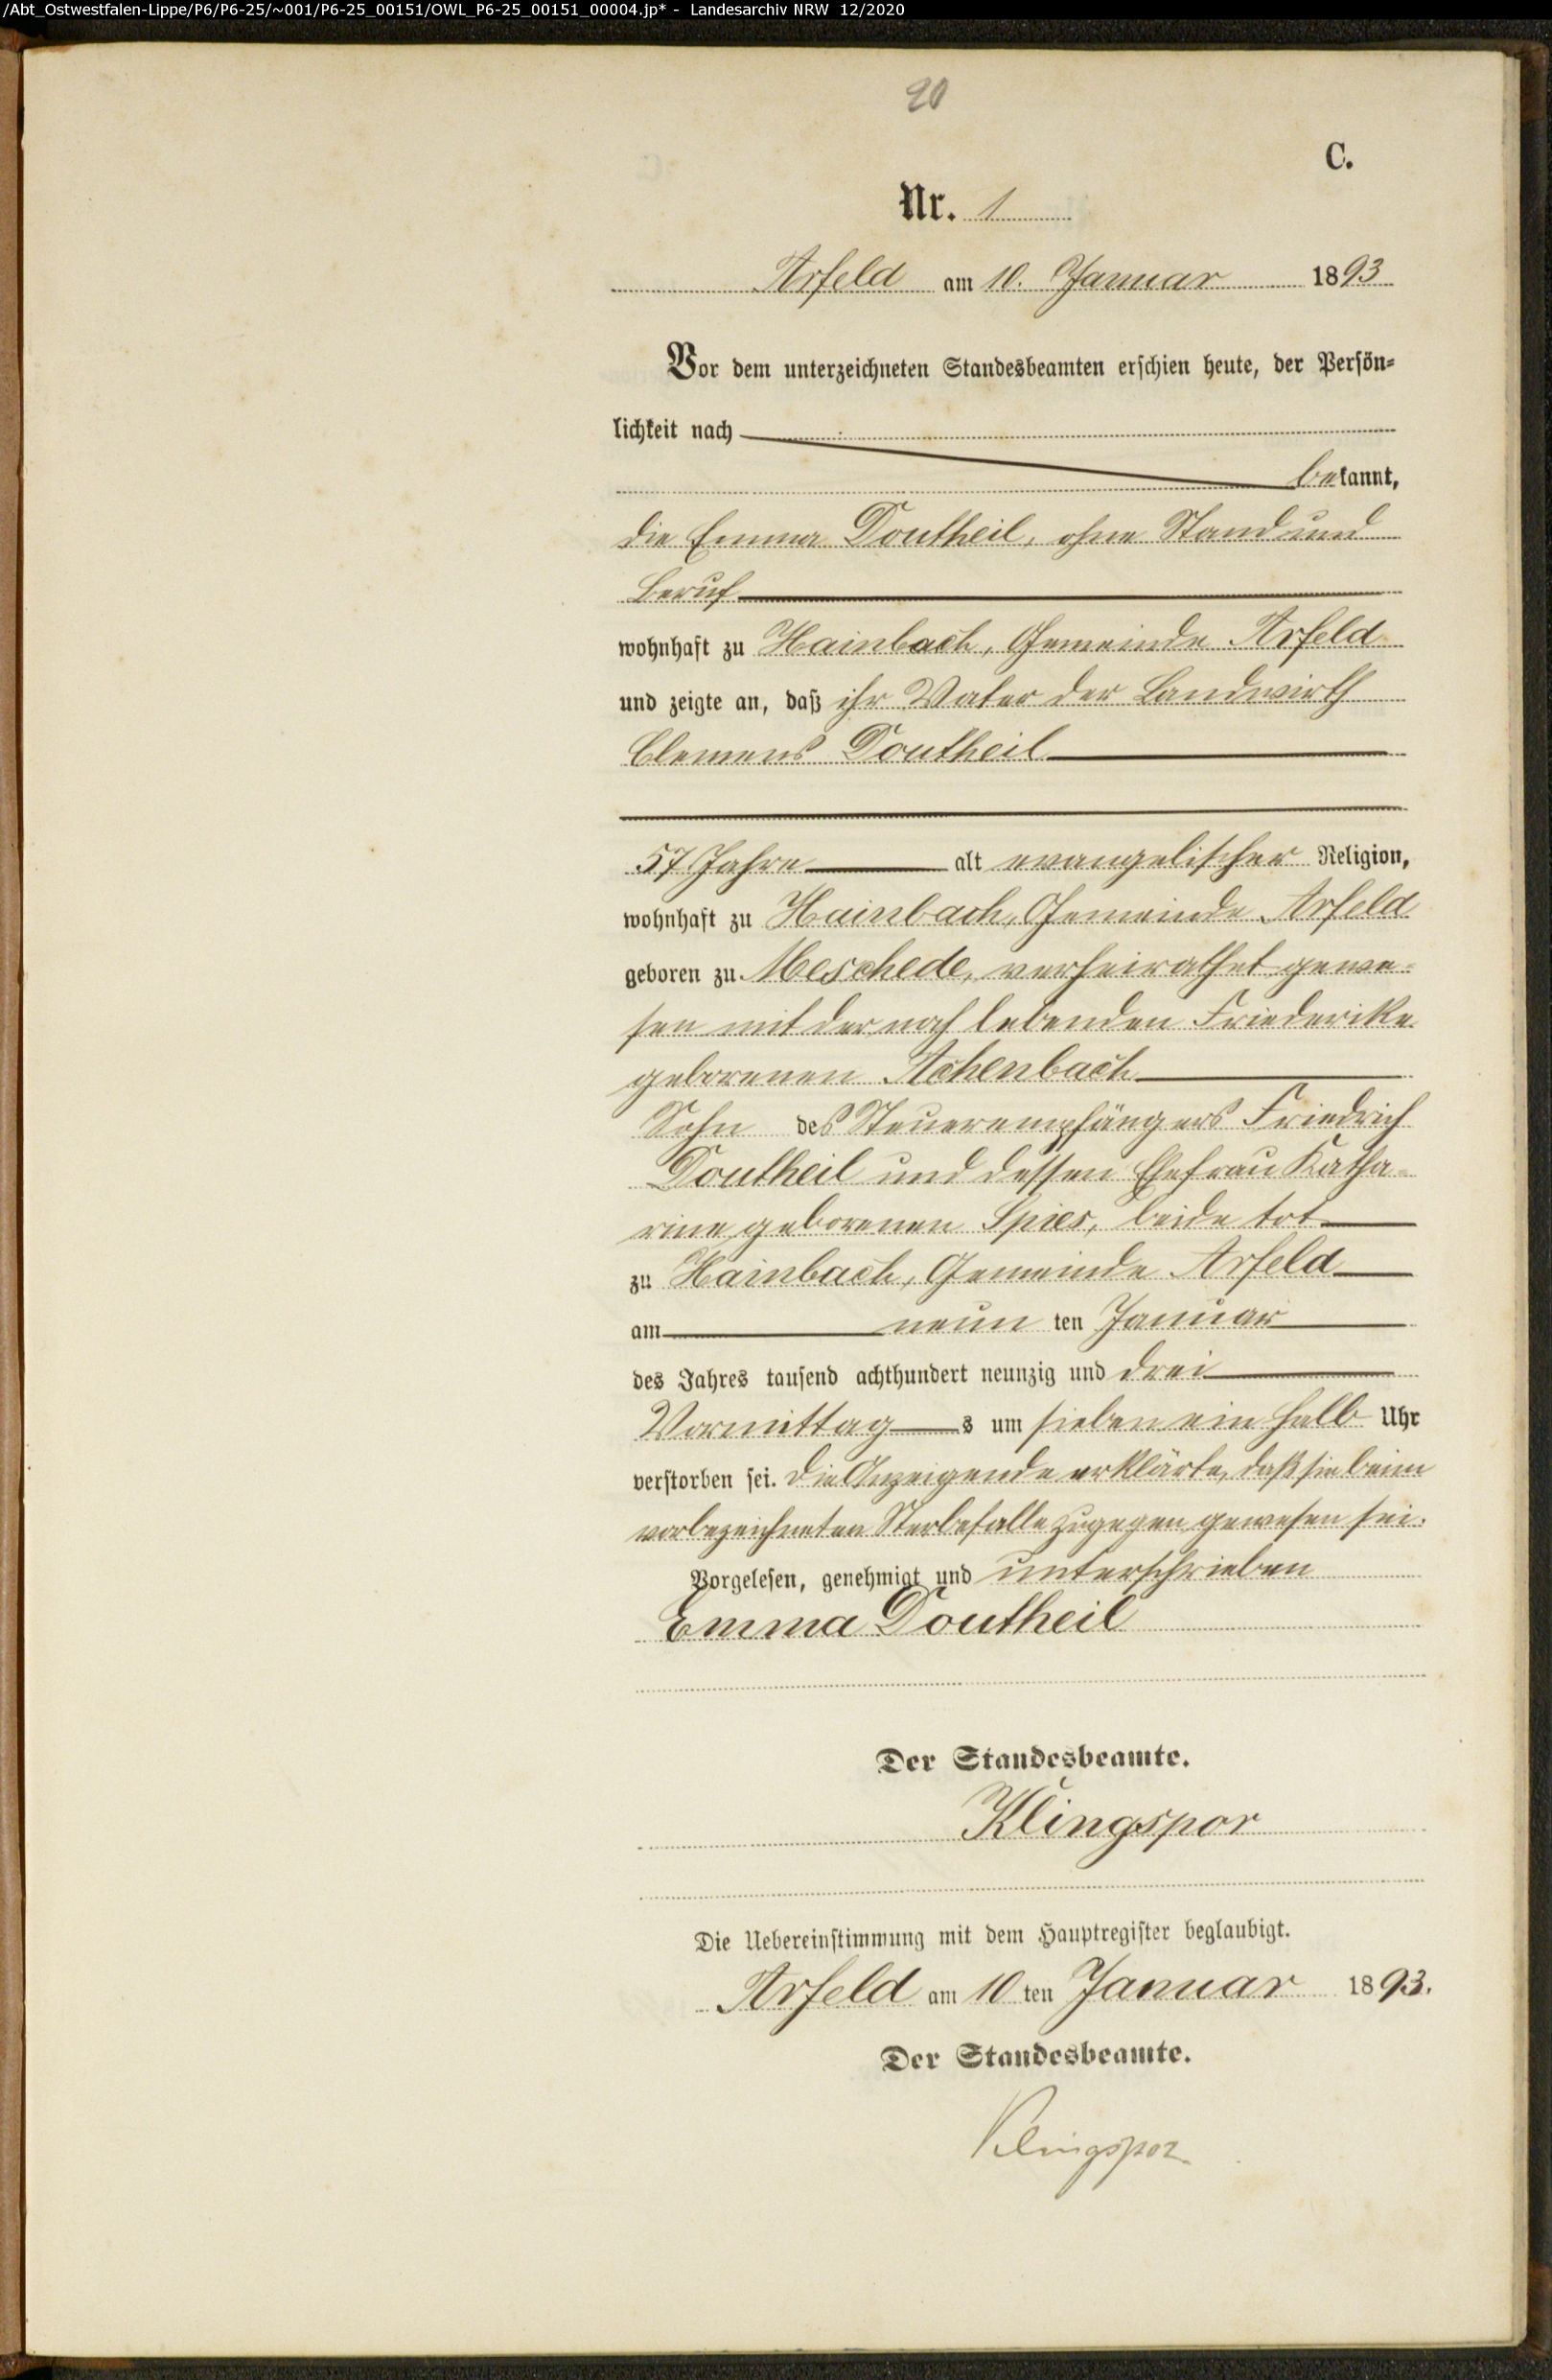 /Abt_Ostwestfalen-Lippe/P6/P6-25/~001/P6-25_00151/OWL_P6-25_00151_00004.jp* - Landesarchiv NRW 12/2020
20
C.
Nr. 1
Arfeld am 10. Januar 1893
Vor dem unterzeichneten Standesbeamten erschien heute, der Persön-
lichkeit nach
bekannt,
die Emma Doutheil, ohne Stand und
Beruf
wohnhaft zu Hainbach, Gemeinde Arfeld
und zeigte an, daß ihr Vater der Landwirth
Clemens Doutheil
57 Jahre alt evangelischer Religion,
wohnhaft zu Hainbach, Gemeinde Arfeld
geboren zu Meschede, verheirathet gewe-
sen mit der noch lebenden Friederike
geborenen Achenbach
Sohn des Steuerempfängers Friedrich
Doutheil und dessen Ehefrau Katha-
rine geborenen Spies, beide tot
zu Hainbach, Gemeinde Arfeld
am neun ten Januar
des Jahres tausend achthundert neunzig und drei
Vormittag s um sieben ein halb Uhr
verstorben sei. Die Anzeigende erklärte, daß sie beim
vorbezeichneten Sterbefalle zugegen gewesen sei.
Vorgelesen, genehmigt und unterschrieben
Emma Doutheil
Der Standesbeamte.
Klingspor
Die Uebereinstimmung mit dem Hauptregister beglaubigt.
Arfeld am 10 ten Januar 1893.
Der Standesbeamte.
Klingspor